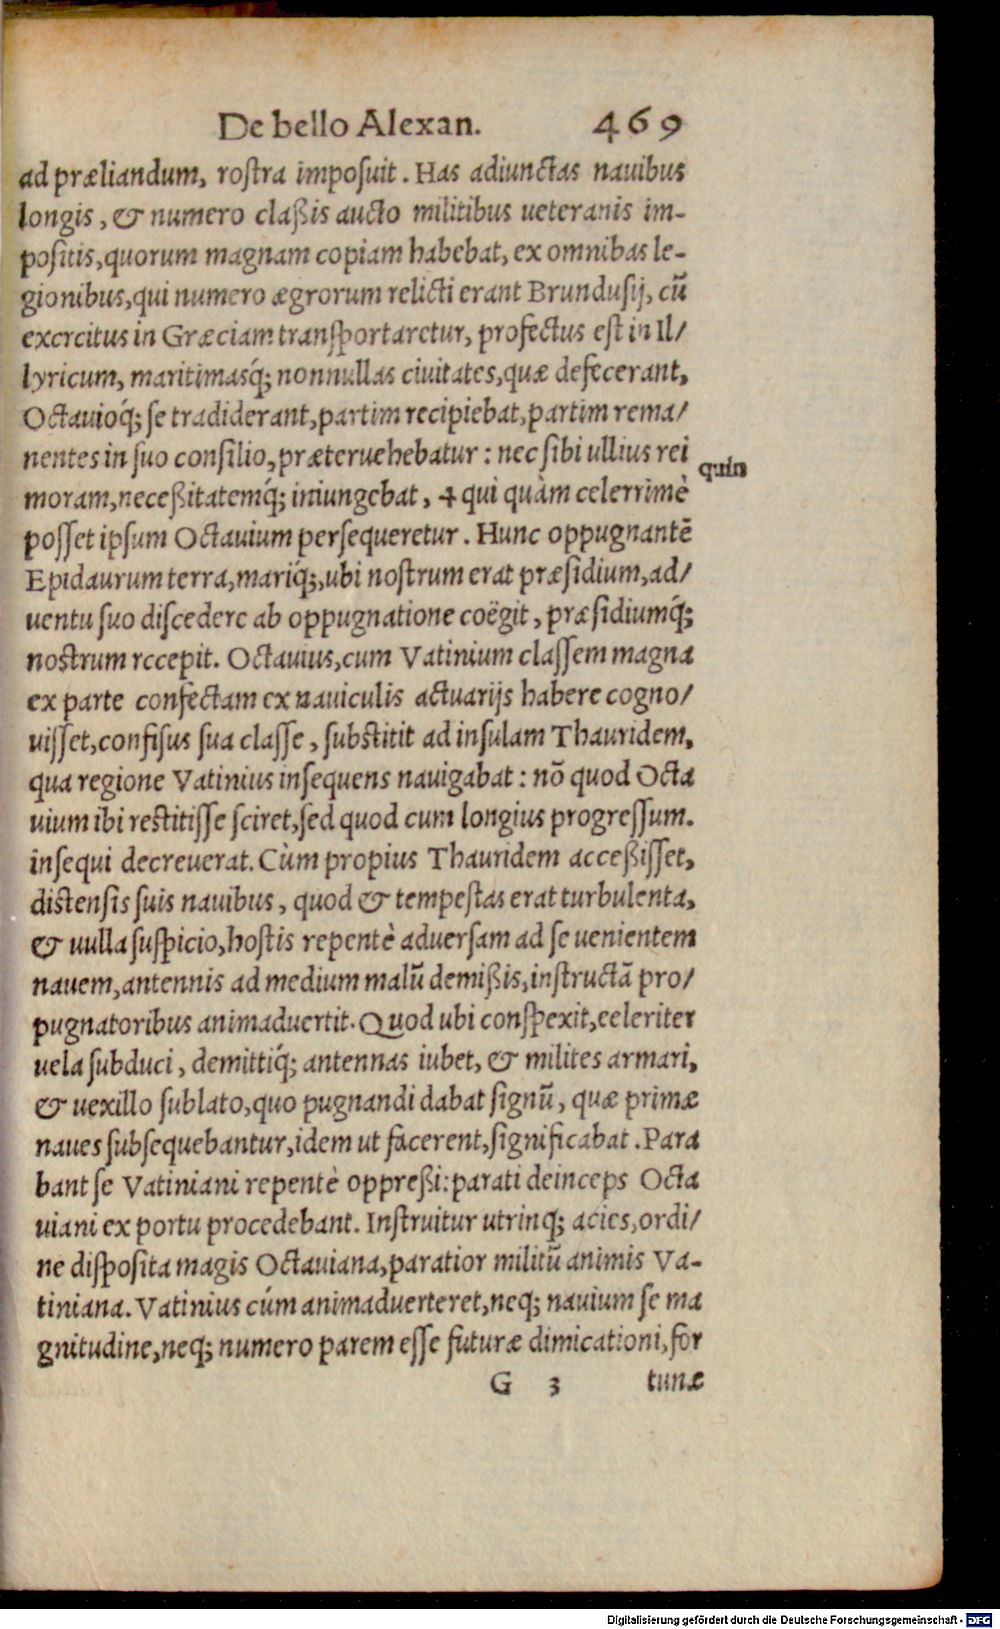 De bello Alexan. 469
ad præliandum, rostra imposuit. Has adiunctas nauibus
longis, & numero claßis aucto militibus ueteranis im-
positis, quorum magnam copiam habebat, ex omnibas le-
gionibus, qui numero ægrorum relicti erant Brundusij, cū
excrcitus in Græciam transportaretur, profectus est in Il/
lyricum, maritimasq́; nonnullas ciuitates, quæ defecerant,
Octauioq́; se tradiderant, partim recipiebat, partim rema/
nentes in suo consilio, præteruehebatur: nec sibi ullius rei
quin
moram, neceßitatemq́; iniungebat, ⁴ qui quàm celerrimè
posset ipsum Octauium persequeretur. Hunc oppugnantē
Epidaurum terra, mariq́;, ubi nostrum erat præsidium, ad/
uentu suo discedere ab oppugnatione coëgit, præsidiumq́;
nostrum rccepit. Octauius, cum Vatinium classem magna
ex parte confectam ex nauiculis actuarijs habere cogno/
uisset, confisus sua classe, substitit ad insulam Thauridem,
qua regione Vatinius insequens nauigabat: nō quod Octa
uium ibi restitisse sciret, sed quod cum longius progressum.
insequi decreuerat. Cùm propius Thauridem acceßisset,
distensis suis nauibus, quod & tempestas erat turbulenta,
& uulla suspicio, hostis repentè aduersam ad se uenientem
nauem, antennis ad medium malū demißis, instructā pro/
pugnatoribus animaduertit. Quod ubi conspexit, eeleriter
uela subduci, demittiq́; antennas iubet, & milites armari,
& uexillo sublato, quo pugnandi dabat signū, quæ primæ
naues subsequebantur, idem ut facerent, significabat. Para
bant se Vatiniani repentè oppreßi: parati deinceps Octa
uiani ex portu procedebant. Instruitur utrinq; acies, ordi/
ne disposita magis Octauiana, paratior militū animis Va-
tiniana. Vatinius cúm animaduerteret, neq; nauium se ma
gnitudine, neq; numero parem esse futuræ dimicationi, for
G 3 tunæ
Digitalisierung gefördert durch die Deutsche Forschungsgemeinschaft - DFG